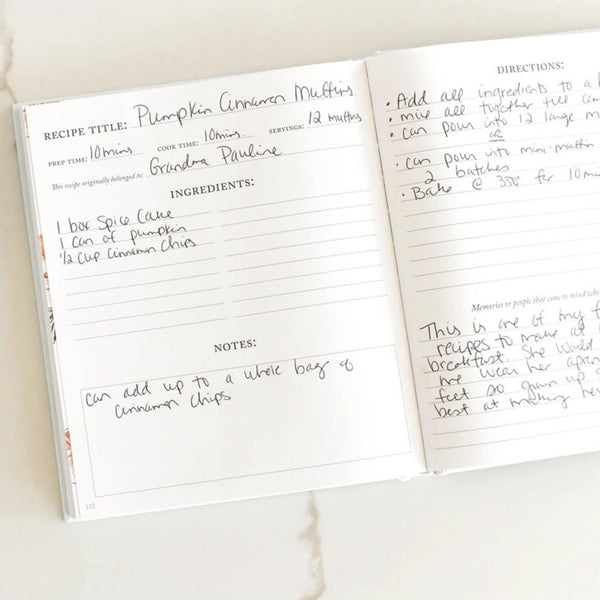 RECIPE TITLE: Pumpkin Cinnamon Muffins
PREP TIME: 10 mins COOK TIME: 10 mins. SERVINGS: 12 muffins
This recipe originally belonged to: Grandma Pauline
INGREDIENTS:
1 box Spice Cake
1 Can of pumpkin
1/2 cup Cinnamon Chips
NOTES:
can add up to a whole bag of
Cinnamon Chips
132
DIRECTIONS:
• Add all ingredients to a
• mix all together till
• can pour into 12 large
or
• can pour into mini-muffin
2 batches
• Bake @ 350° for 10
Memories or people that come to mind
This is one of my
recipes to make at
breakfast. She would
me wear her
feet so grown up
best at making